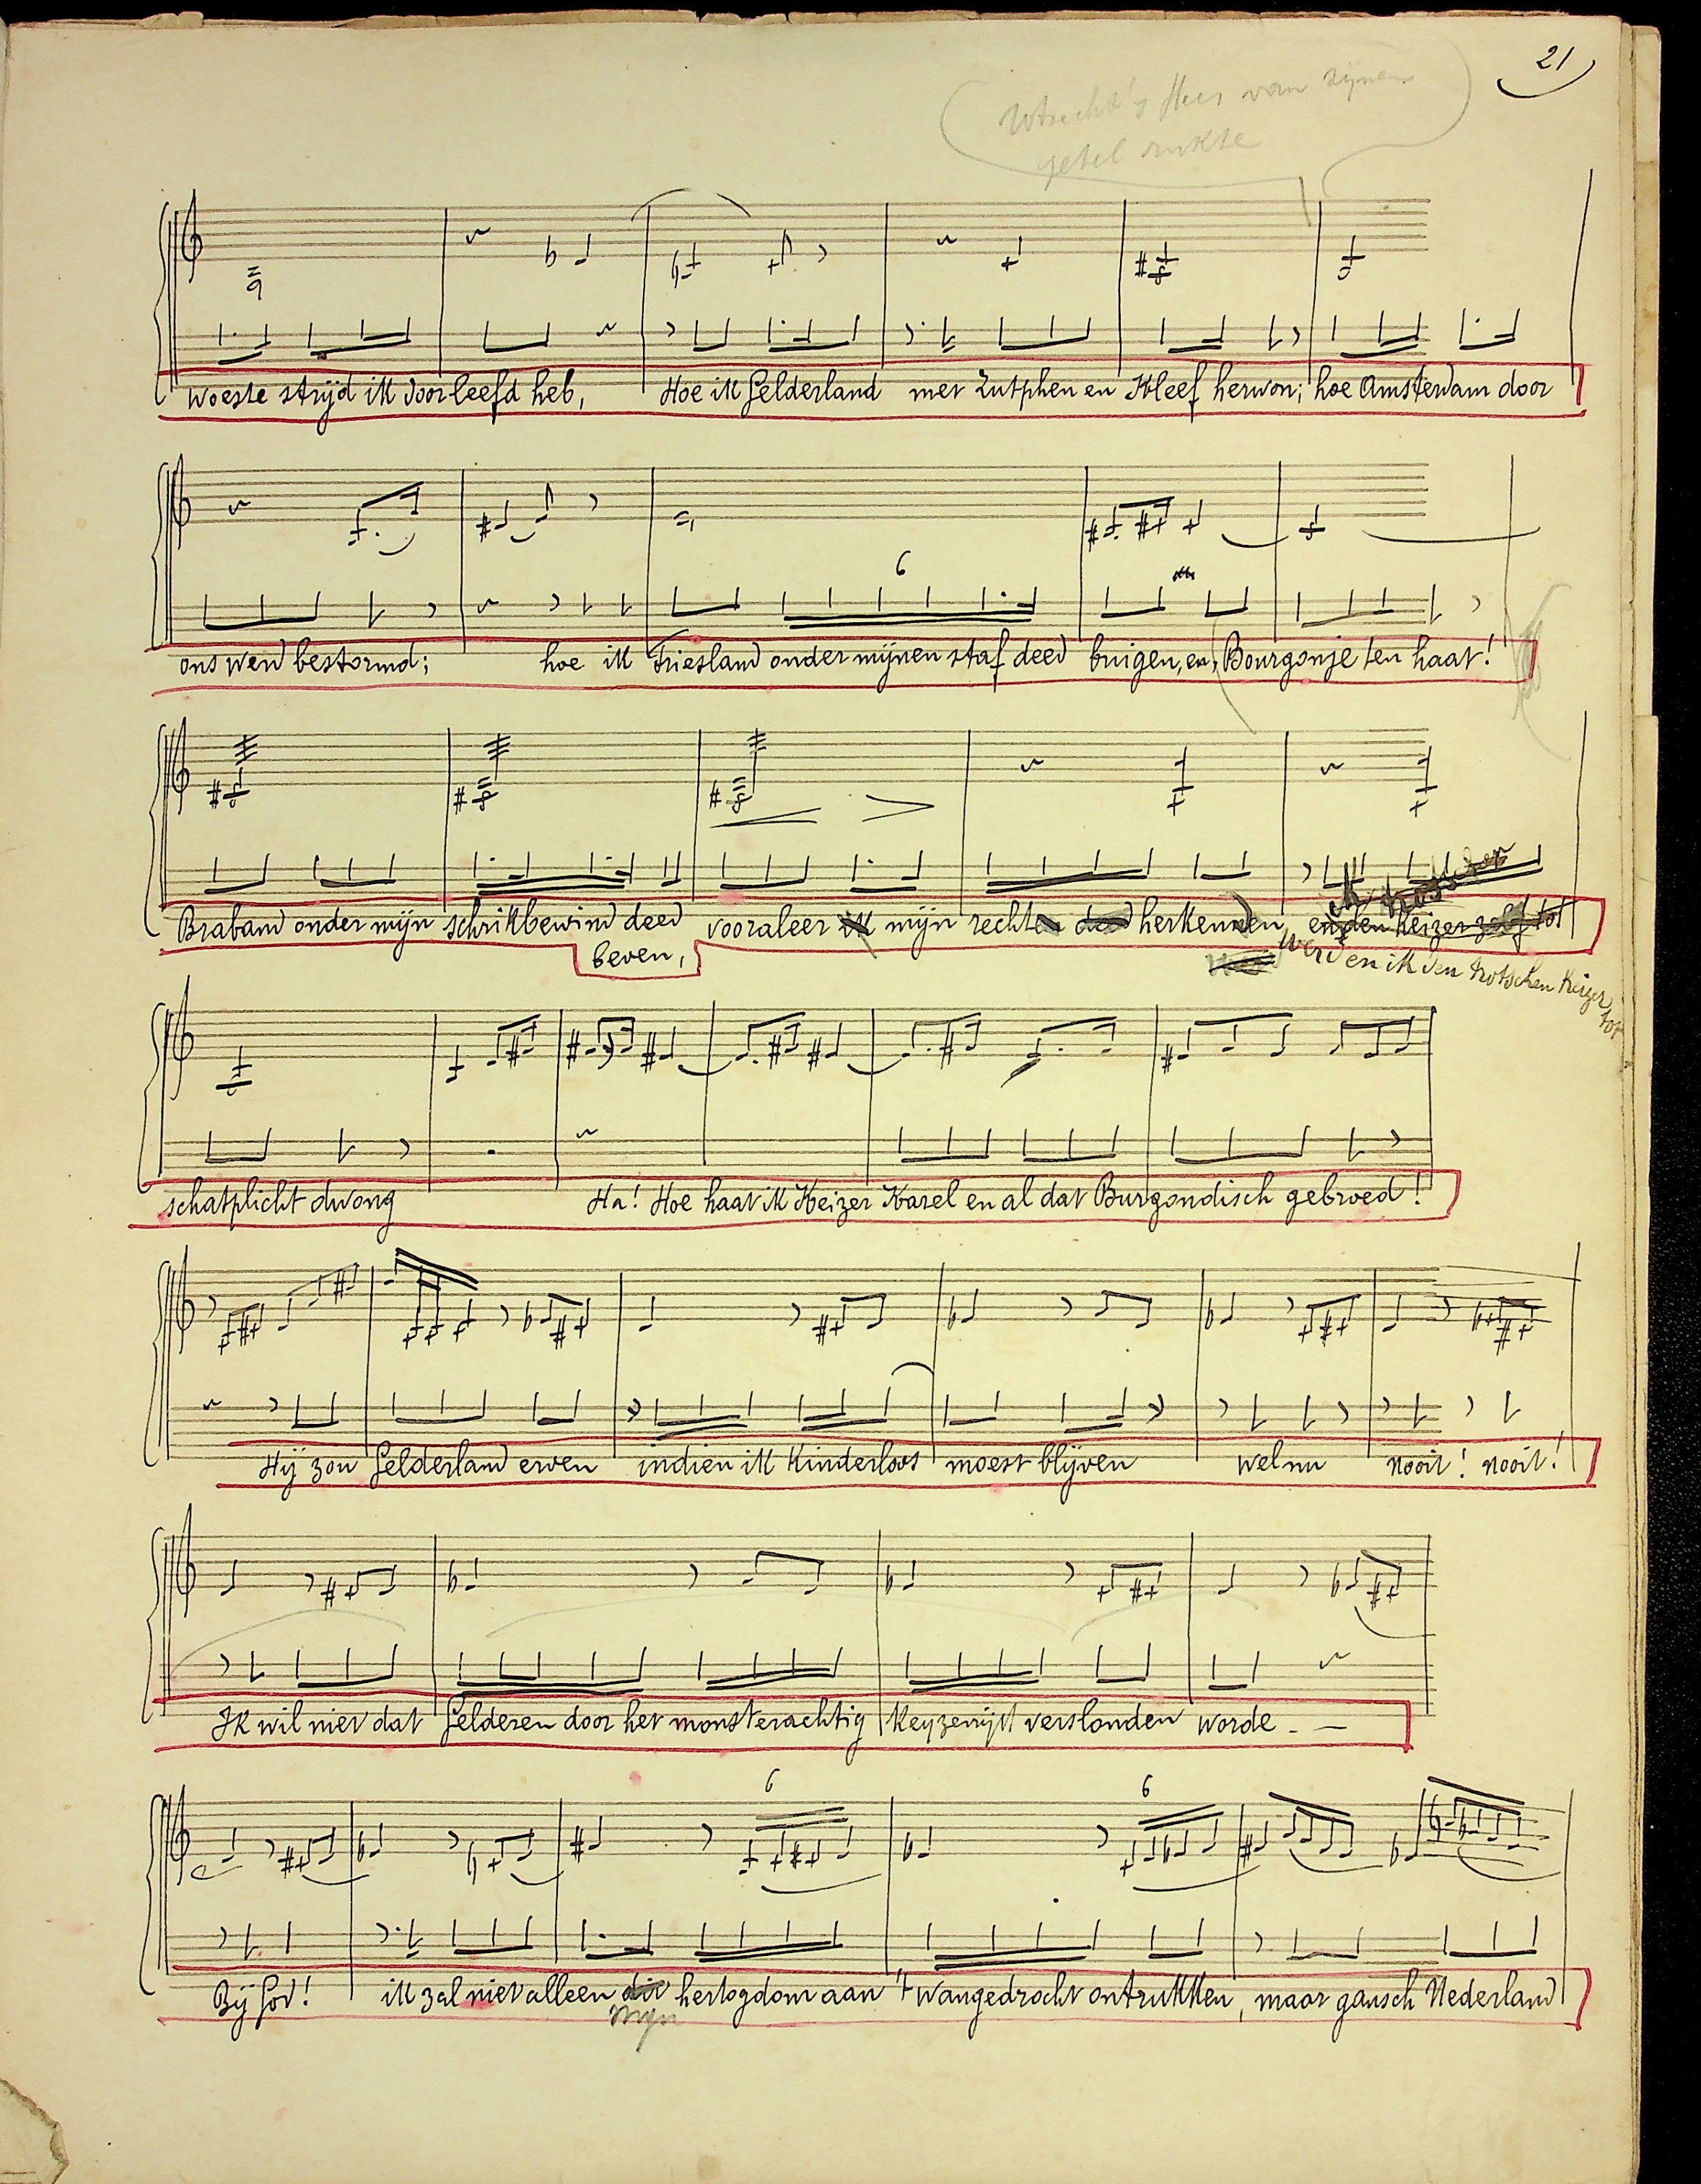 21
Utrecht's Heer van zijnen
zetel rukte
woeste strijd ik doorleefd heb, Hoe ik Gelderland met Zutphen en Kleef herwon; hoe Amsterdam door
6
ons werd bestormd; hoe ik Friesland onder mijnen staf deed buigen, en, Bourgonje ten haat!
Braband onder mijn schrikbewind deed vooraleer ik mijn rechten deed herkennen, en den Keizer zelf tot
beven,
werd en ik den trotschen Keizer tot
schatplicht dwong Ha! Hoe haat ik Keizer Karel en al dat Burgondisch gebroed!
Hij zou Gelderland erven indien ik Kinderloos moest blijven welnu nooit! nooit!
Ik wil niet dat Gelderen door het monsterachtig Keyzerrijk verslonden worde - —
6 6
Bij God! ik zal niet alleen dit hertogdom aan 't wangedrocht ontrukken, maar gansch Nederland
mijn